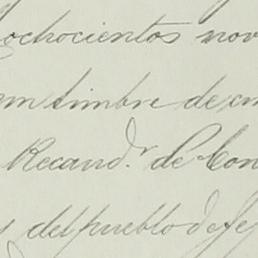 ochocientos nov
un timbre de cin
Recaud.r de Con
y del pueblo de Je